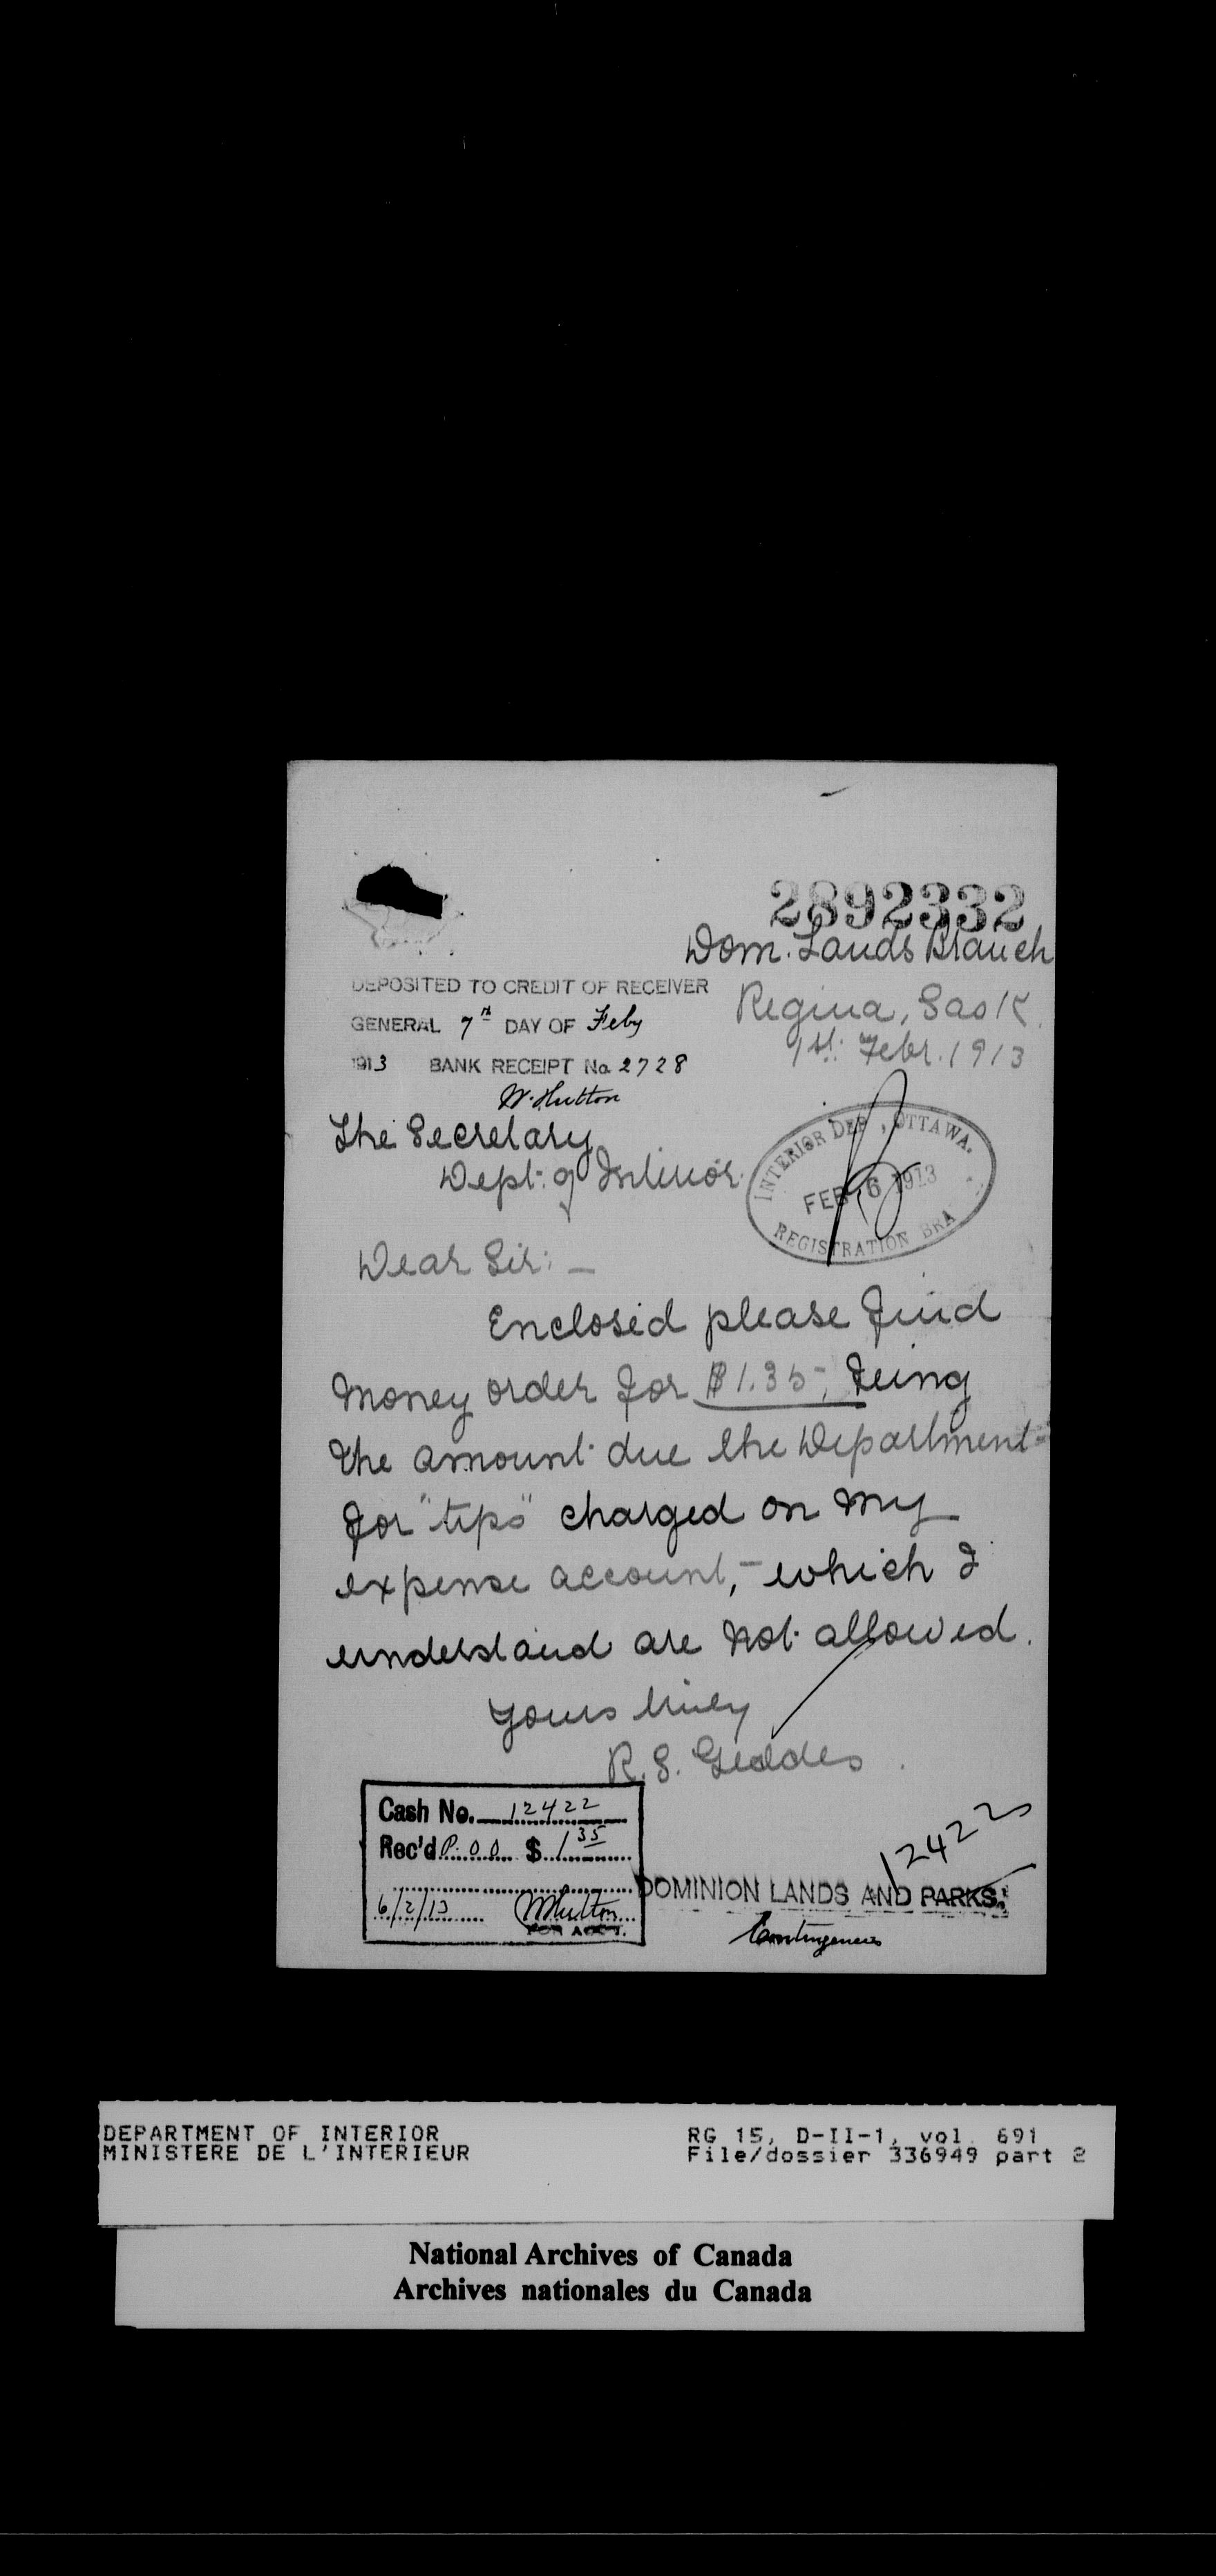 2892332
Dom. Lands Branch
Regina, Sask.
1st. Febr. 1913
DEPOSITED TO CREDIT OF RECEIVER
GENERAL 7th DAY OF Feby
1913 BANK RECEIPT No. 2728
W. Hutton
The Secretary
Dept. of Interior.
INTERIOR DEP , OTTAWA.
FEB 6 1913
REGISTRATION BRA
Dear Sir: —
Enclosed please find
money order for $1.35-, being
the amount due the Department
for "tips" charged on my
expense account, - which I
understand are not allowed.
Yours truly
R.S. Geddes.
Cash No. 12422
Rec'd P.O.O. $ 1 35
6/2/13 W Hutton
FOR ACCT.
12422
DOMINION LANDS AND PARKS.
Contingencies
DEPARTMENT OF INTERIOR
MINISTERE DE L'INTERIEUR
RG 15, D-II-1, vol. 691
File/dossier 336949 part 2
National Archives of Canada
Archives nationales du Canada